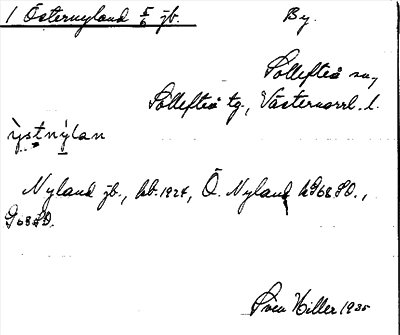 1 Östernyland 5/6 jb. By.
Sollefteå sn,
Sollefteå tg., Västernorrl. l.
ỳstnỳlan
Nyland jb., hb. 1924, Ö. Nyland hG68SO.,
G68SO.
Sven Hiller 1935